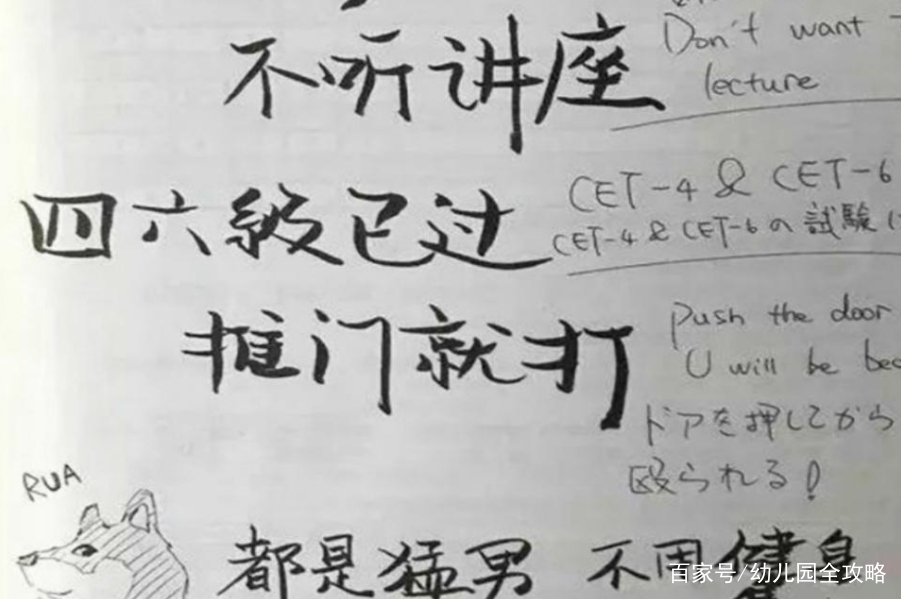 不听讲座
Don't want
lecture
四六级已过
CET-4 & CET-6
CET-4 & CET-6の試験
推门就打
push the door
U will be
ドアを押してから
殴られる!
RUA
都是猛男 不用健身
百家号/幼儿园全攻略